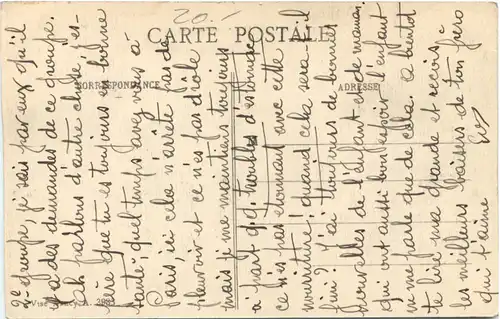 20.-
CARTE POSTALE
CORRESPONDANCE
ADRESSE
2e groupe, je sais par eux qu'il
y a des demandes de ce groupe.
Ah parlons d'autre chose, j'es-
père que tu es toujours bonne
santé, quel temps avez vous à
Paris, ici cela n'arrête pas de
pleuvoir et ce n'est pas drôle
mais je me maintiens toujours
à part q.q. troubles d'estomac
ce n'est pas étonnant avec cette
nourriture! quand cela sera-t-il
fini? J'ai toujours de bonnes
nouvelles de l'enfant et de maman
qui ont aussi bon espoir l'enfant
ne me parle que de cela. A bientôt
te lire ma grande et reçois
les meilleurs baisers de ton frère
qui t'aime
Visé Nancy